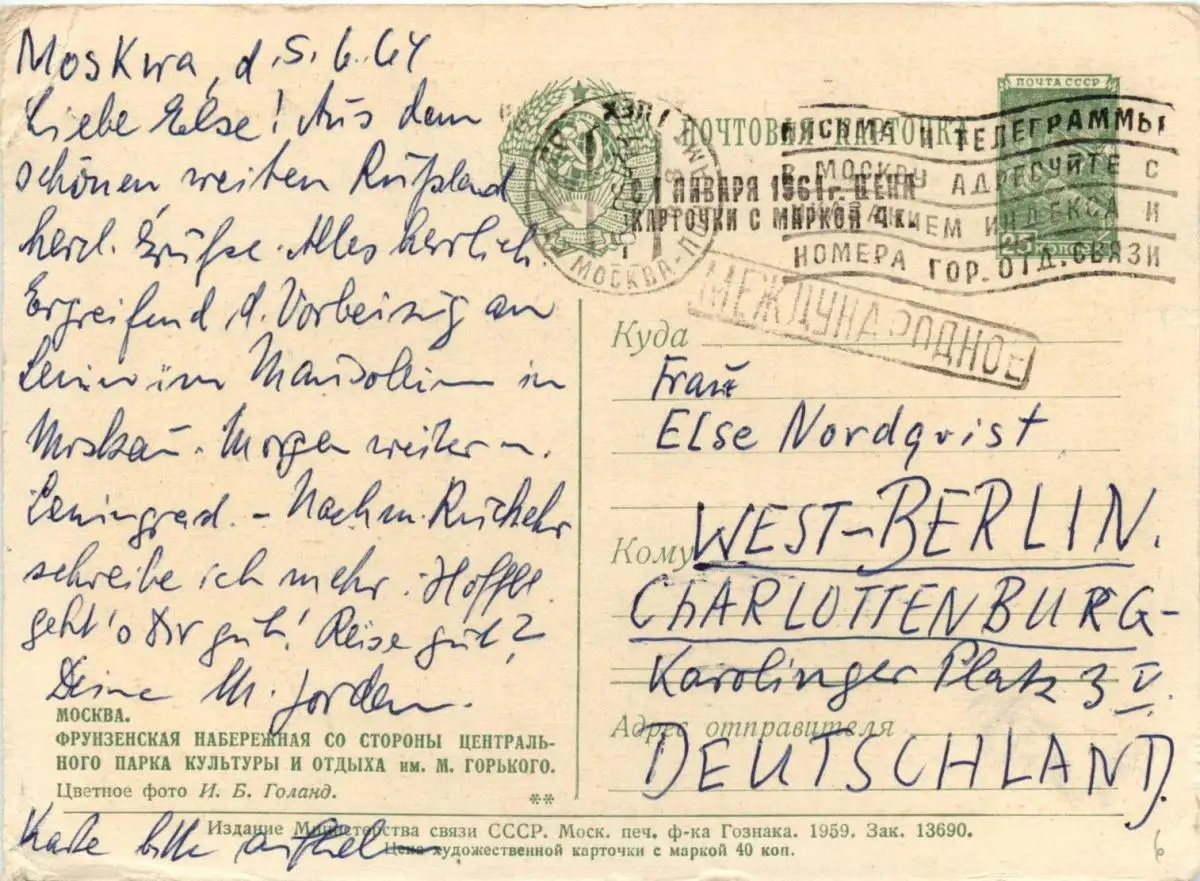 Moskwa, d. 5.6.64
Liebe Else! Aus dem
schönen weiten Rußland
herzl. Grüße. Alles herrlich.
Ergreifend d. Vorbeizug an
Lenin im Mausoleum in
Moskau. Morgen weiter n.
Leningrad. – Nach m. Rückkehr
schreibe ich mehr. Hofftl.
geht's Dir gut! Reise gut?
Deine M. Jordan.
МОСКВА.
ФРУНЗЕНСКАЯ НАБЕРЕЖНАЯ СО СТОРОНЫ ЦЕНТРАЛЬ-
НОГО ПАРКА КУЛЬТУРЫ И ОТДЫХА им. М. ГОРЬКОГО.
Цветное фото И. Б. Голанд.
**
Karte bitte aufheb
ПОЧТОВАЯ КАРТОЧКА
ПОЧТА СССР
25 КОПЕЕК
С 1 ЯНВАРЯ 1961 г. ЦЕНА
КАРТОЧКИ С МАРКОЙ 4 к.
МОСКВА
ПИСЬМА И ТЕЛЕГРАММЫ
В МОСКВУ АДРЕСУЙТЕ С
УКАЗАНИЕМ ИНДЕКСА И
НОМЕРА ГОР. ОТД. СВЯЗИ
МЕЖДУНАРОДНОЕ
Куда
Frau
Else Nordqvist
Кому WEST-BERLIN.
CHARLOTTENBURG-
Karolinger Platz 3 V
Адрес отправителя
DEUTSCHLAND.
Издание Министерства связи СССР. Моск. печ. ф-ка Гознака. 1959. Зак. 13690.
Цена художественной карточки с маркой 40 коп.
6